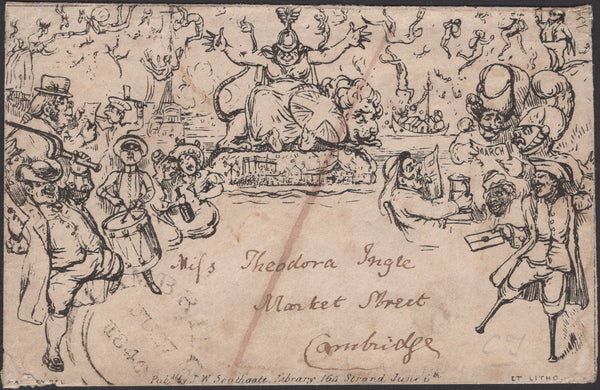 MARCH
Miss Theodora Ingle
Market Street
Cambridge
C I
Pubd by J. W. Southgate, Library 164 Strand June
ET LITHO.
1840